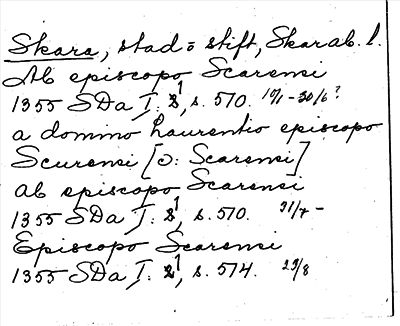 Skara, stad o stift, Skarab. l.
Ab episcopo Scarensi
1355 SDa I: 1, s. 510. 19/1 - 30/6?
a domino Laurentio episcopo
Scurensi [ɔ: Scarensi]
ab episcopo Scarensi
1355 SDa I: 1, s. 510. 31/7 -
Episcopo Scarensi
1355 SDa I: 1, s. 514. 23/8